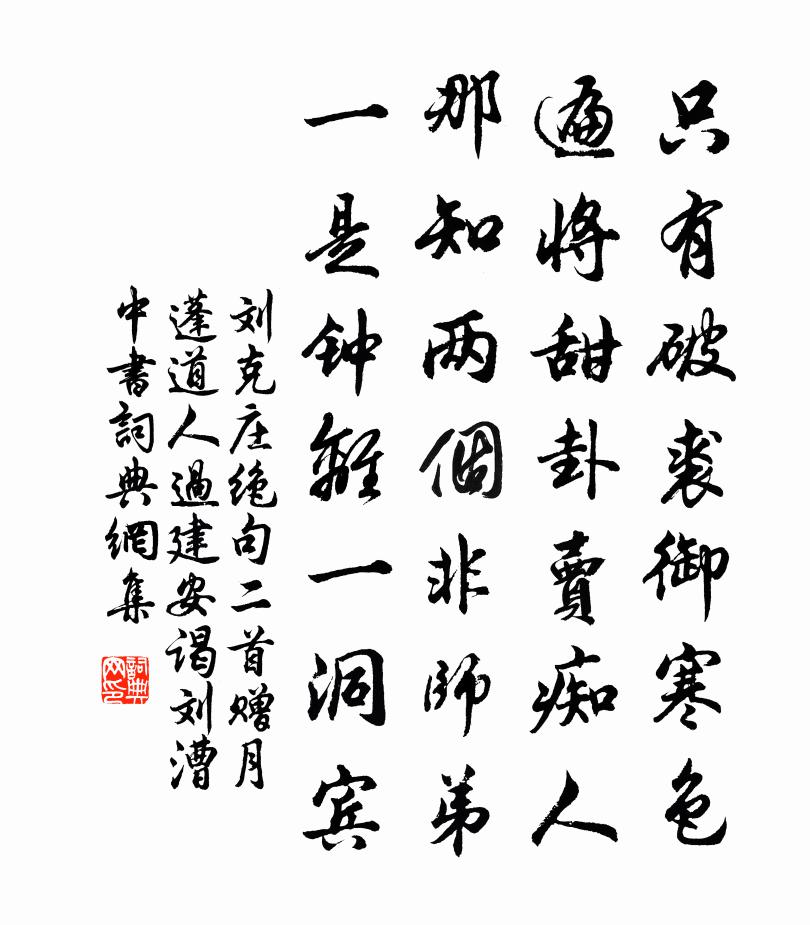 只有破裘御寒色
遍將甜卦賣痴人
那知两個非師弟
一是钟離一洞宾
刘克庄绝句二首赠月
蓬道人過建安谒刘漕
中書詞典網集
詞典网印